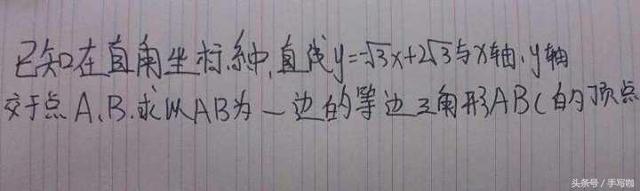 已知在直角坐标系中,直线y=-√3x+2√3与x轴、y轴
交于点A、B.求以AB为一边的等边三角形ABC的顶点
头条号 / 手写咖